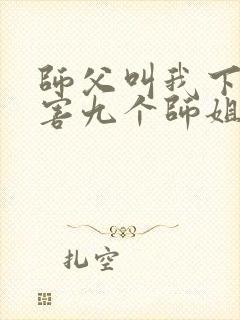 師父叫我下
害九个師姐
扎空